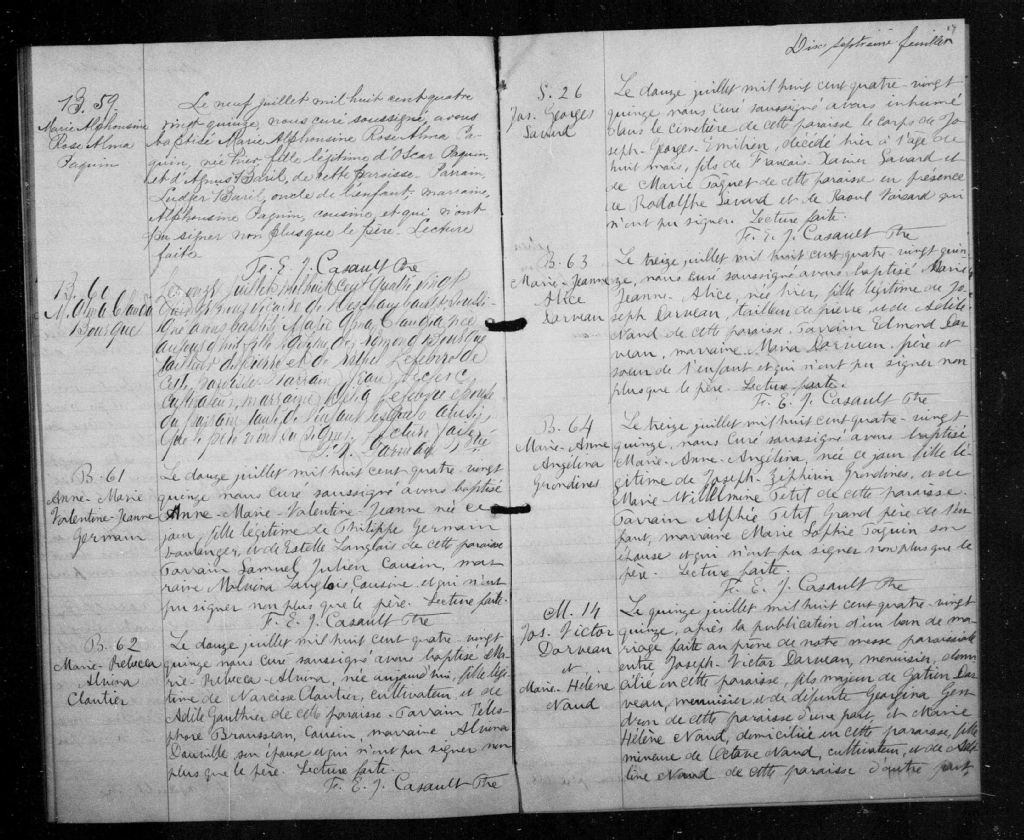 B. 59.
Marie Alphonsine
Rose Alma
Paquin
Le neuf juillet mil huit cent quatre
vingt quinze, nous curé soussigné, avons
baptisé Marie Alphonsine Rose Alma Pa-
quin, née hier, fille légitime d'Oscar Paquin
et d'Agnes Baril, de cette paroisse. Parrain,
Ludger Baril, oncle de l'enfant, marraine,
Alphonsine Paquin, cousine, et qui n'ont
pu signer non plus que le père. Lecture
faite
F. E. J. Casault Ptre
B. 60
M. Alma Claudia
Bourque
Le onze juillet mil huit cent quatre vingt
quinze nous vicaire de Deschambault soussi-
gné avons baptisé Marie Alma Claudia née
aujourd'hui fille légitime de
tailleur de pierre et de Lefebvre de
cette paroisse Parrain Jean Leclerc
cultivateur, marraine épouse
du parrain tante de l'enfant lesquels ainsi
que le père n'ont pu signer. Lecture faite
B. 61
Anne-Marie
Valentine-Jeanne
Germain
Le douze juillet mil huit cent quatre-vingt
quinze nous curé soussigné avons baptisé
Anne-Marie-Valentine-Jeanne née ce
jour, fille légitime de Philippe Germain
boulanger, et de Estelle Langlais de cette paroisse
Parrain Samuel Julien Cousin, mar
raine Malvina Langlois, Cousine et qui n'ont
pu signer non plus que le père. Lecture faite.
F. E. J. Casault Ptre
B. 62
Marie-Rebecca
Alvina
Cloutier
Le douze juillet mil huit cent quatre-vingt
quinze nous curé soussigné avons baptisé Ma-
rie-Rebecca-Alvina, née aujourd'hui, fille légi
time de Narcisse Cloutier, cultivateur et de
Adèle Gauthier de cette paroisse. Parrain Téles
phore Brousseau, Cousin, marraine Alvina
son épouse et qui n'ont pu signer non
plus que le père. Lecture faite.
F. E. J. Casault Ptre
Dix septième feuillet
S. 26
Jos. Georges
Savard
Le douze juillet mil huit cent quatre-vingt
quinze nous curé soussigné avons inhumé
dans le cimetière de cette paroisse le corps de Jo
seph-Georges-Emilien, décédé hier à l'age de
huit mois, fils de François-Xavier Savard et
de Marie Paquet de cette paroisse en présence
de Rodolphe Savard et de Raoul Voisard qui
n'ont pu signer. Lecture faite.
F. E. J. Casault Ptre
B. 63
Marie-Jeanne
Alice
Darveau
Le treize juillet mil huit cent quatre-vingt quin
ze, nous curé soussigné avons baptisé Marie
Jeanne-Alice, née hier, fille légitime de Jo
seph Darveau, tailleur de pierre, et de Adèle
Naud de cette paroisse. Parrain Edmond Dar
veau, marraine Maria Darveau. frère et
soeur de l'enfant et qui n'ont pu signer non
plus que le père. Lecture faite.
F. E. J. Casault Ptre
B. 64
Marie-Anne
Angélina
Grondines
Le treize juillet mil huit cent quatre-vingt
quinze, nous curé soussigné avons baptisé
Marie-Anne-Angélina, née ce jour fille lé
gitime de Joseph-Zéphirin Grondines, et de
Marie Willelmine Petit de cette paroisse
Parrain Alphée Petit Grand père de l'en
fant, marraine Marie Sophie Paquin son
épouse et qui n'ont pu signer non plus que le
père. Lecture faite.
F. E. J. Casault Ptre
M. 14
Jos. Victor
Darveau
et
Marie-Hélène
Naud
Le quinze juillet mil huit cent quatre-vingt
quinze, après la publication d'un ban de ma
riage faite au prône de notre messe paroissiale
entre Joseph-Victor Darveau, menuisier, domi
cilié en cette paroisse, fils majeur de Gatien Dar
veau, menuisier et de défunte Georgina Gen
dron de cette paroisse d'une part, et Marie
Hélène Naud, domiciliée en cette paroisse, fille
mineure de Octave Naud, cultivateur, et de Adé
line Naud de cette paroisse d'autre part,